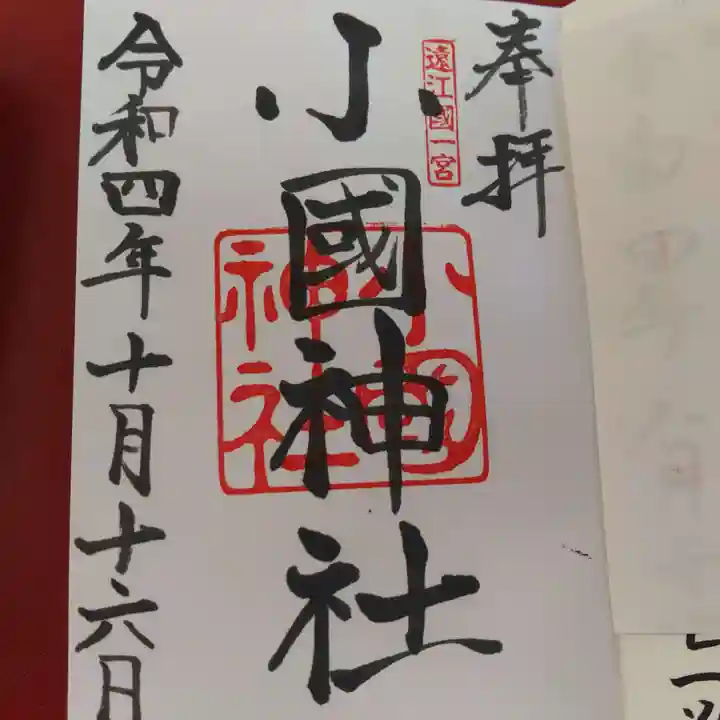 奉拝
遠江國一宮
小國神社
小國神社
令和四年十月十六日